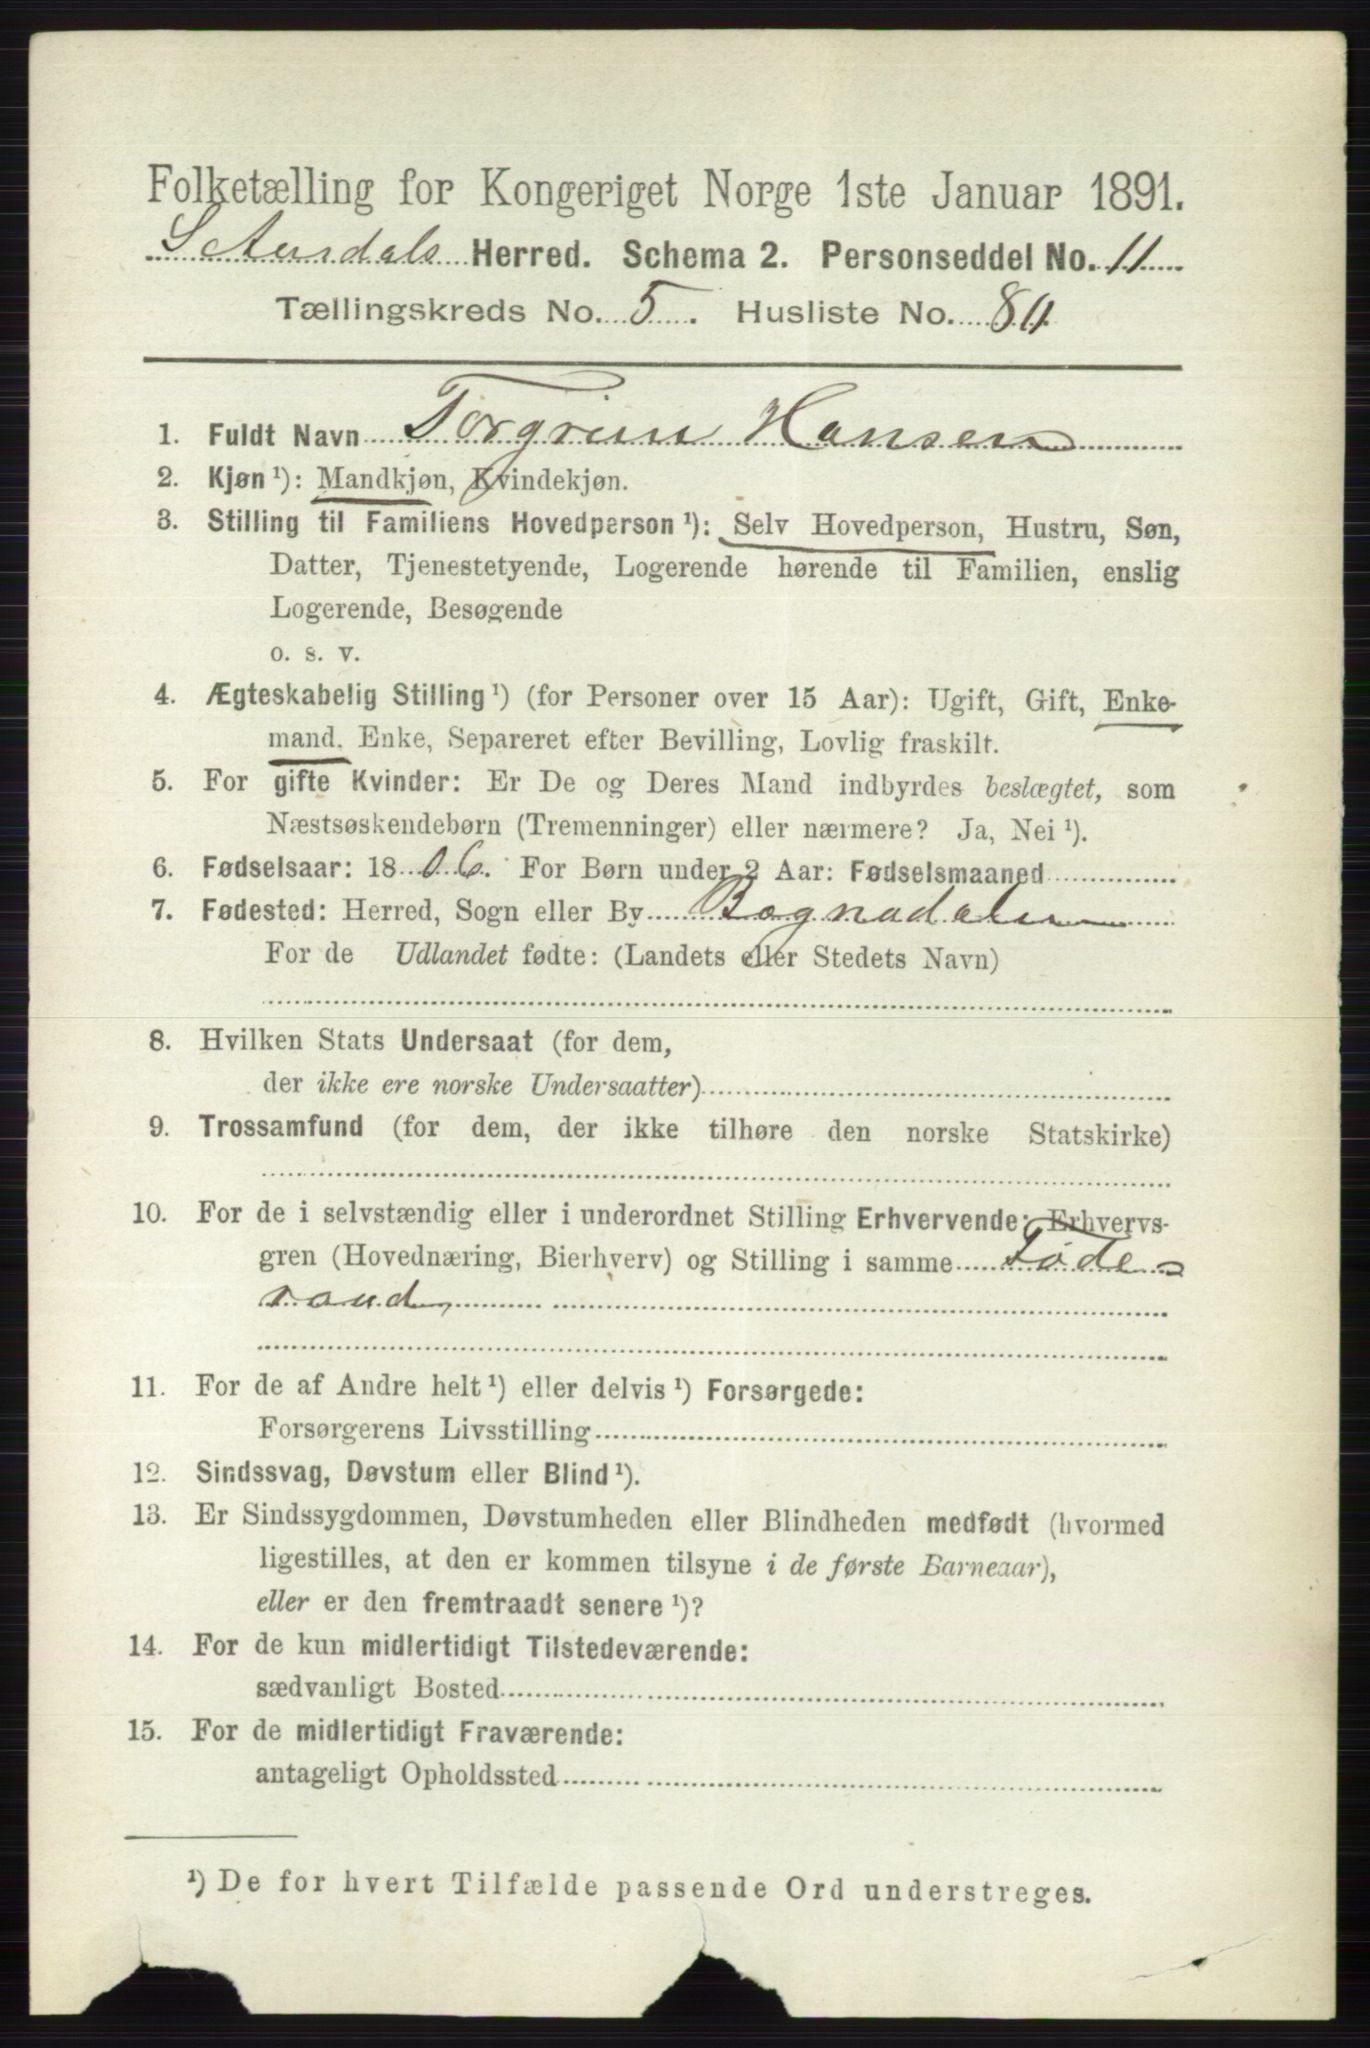 Folketælling for Kongeriget Norge 1ste Januar 1891.
S Aurdals Herred. Schema 2. Personseddel No. 11
Tællingskreds No. 5. Husliste No. 80
1. Fuldt Navn Torgrim Hansen
2. Kjøn ¹): Mandkjøn, Kvindekjøn.
3. Stilling til Familiens Hovedperson ¹): Selv Hovedperson, Hustru, Søn,
Datter, Tjenestetyende, Logerende hørende til Familien, enslig
Logerende, Besøgende
o. s. v.
4. Ægteskabelig Stilling ¹) (for Personer over 15 Aar): Ugift, Gift, Enke-
mand, Enke, Separeret efter Bevilling, Lovlig fraskilt.
5. For gifte Kvinder: Er De og Deres Mand indbyrdes beslægtet, som
Næstsøskendebørn (Tremenninger) eller nærmere? Ja, Nei ¹).
6. Fødselsaar: 1806. For Børn under 2 Aar: Fødselsmaaned
7. Fødested: Herred, Sogn eller By Bagnadalen
For de Udlandet fødte: (Landets eller Stedets Navn)
8. Hvilken Stats Undersaat (for dem,
der ikke ere norske Undersaatter)
9. Trossamfund (for dem, der ikke tilhøre den norske Statskirke)
10. For de i selvstændig eller i underordnet Stilling Erhvervende: Erhvervs-
gren (Hovednæring, Bierhverv) og Stilling i samme Føde-
raad,
11. For de af Andre helt ¹) eller delvis ¹) Forsørgede:
Forsørgerens Livsstilling
12. Sindssvag, Døvstum eller Blind ¹).
13. Er Sindssygdommen, Døvstumheden eller Blindheden medfødt (hvormed
ligestilles, at den er kommen tilsyne i de første Barneaar),
eller er den fremtraadt senere ¹)?
14. For de kun midlertidigt Tilstedeværende:
sædvanligt Bosted
15. For de midlertidigt Fraværende:
antageligt Opholdssted
¹) De for hvert Tilfælde passende Ord understreges.